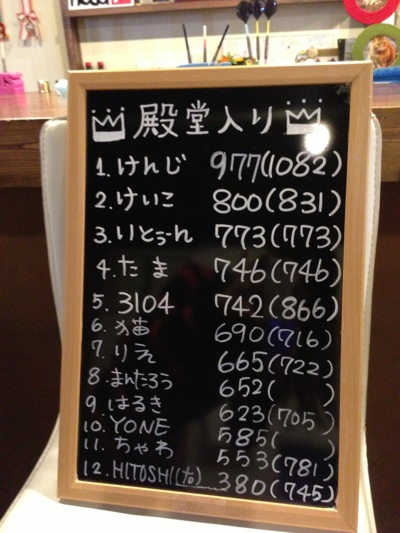 殿堂入り
1. けんじ 977(1082)
2. けいこ 800(831)
3. いとぅーん 773(773)
4. たま 746(746)
5. 3104 742(866)
6. 猫 690(716)
7. りえ 665(722)
8. まんたろう 652( )
9. はるき 623(705)
10. YONE 585( )
11. ちゃわ 553(781)
12. HITOSHI 380(745)